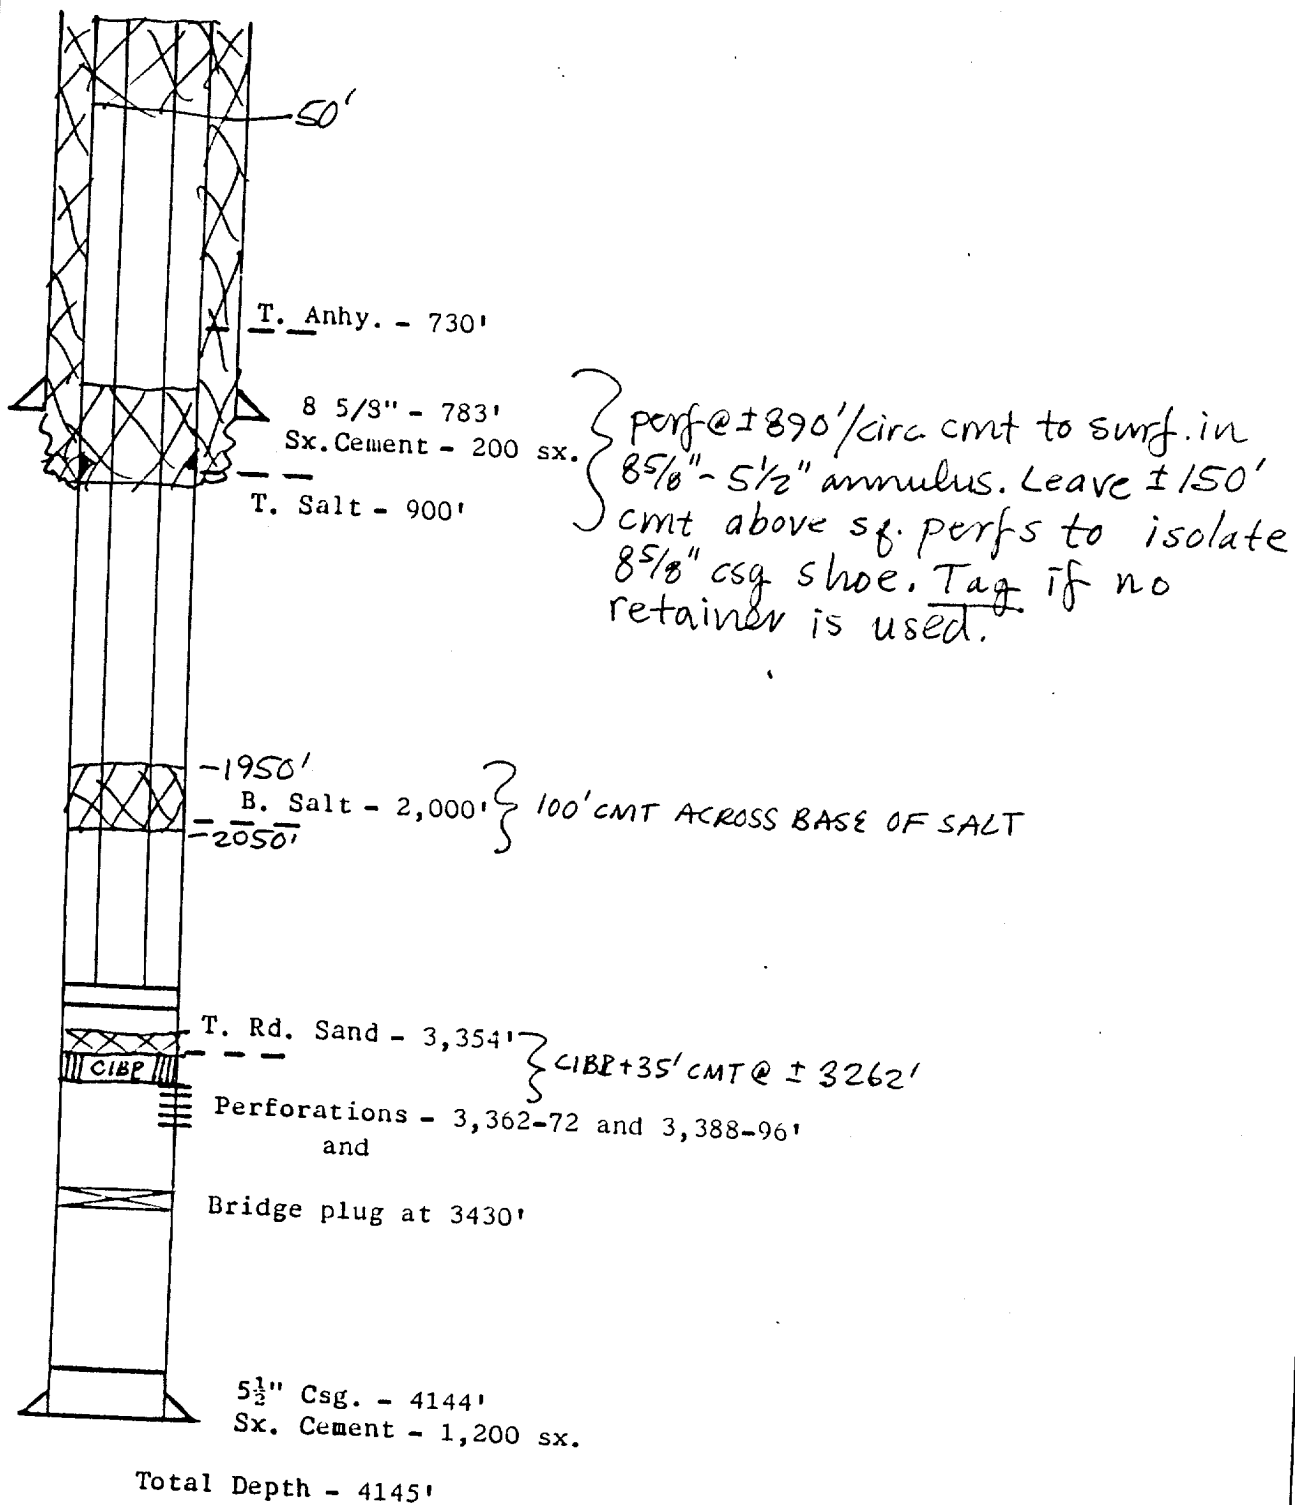 50'
T. Anhy. - 730'
8 5/8" - 783'
Sx. Cement - 200 sx.
T. Salt - 900'
perf @ ± 890'/circ cmt to surf. in
8 5/8" - 5 1/2" annulus. Leave ± 150'
cmt above sq. perfs to isolate
8 5/8" csg shoe. Tag if no
retainer is used.
-1950'
B. Salt - 2,000'
100' CMT ACROSS BASE OF SALT
-2050'
T. Rd. Sand - 3,354'
CIBP
CIBP + 35' CMT @ ± 3262'
Perforations - 3,362-72 and 3,388-96'
and
Bridge plug at 3430'
5½" Csg. - 4144'
Sx. Cement - 1,200 sx.
Total Depth - 4145'